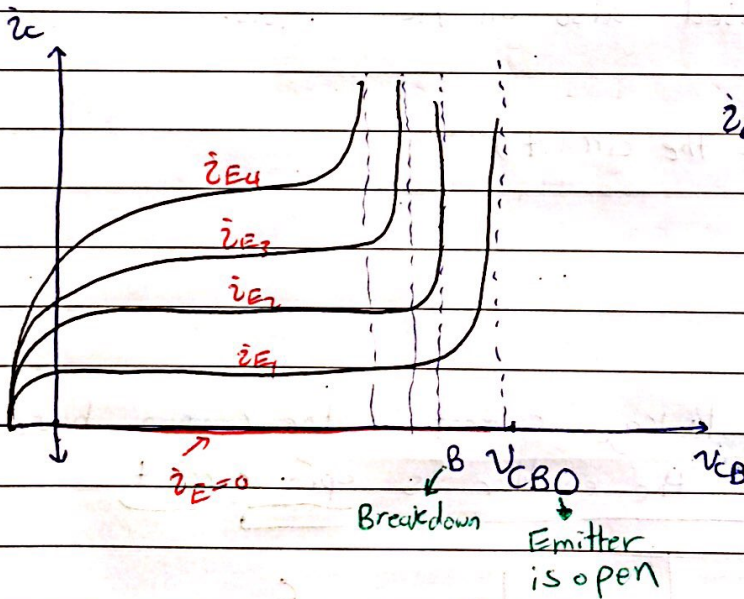 i_C
i_E4
i_E3
i_E2
i_E1
i_E=0
B V_CBO
v_CB
Breakdown
Emitter
is open